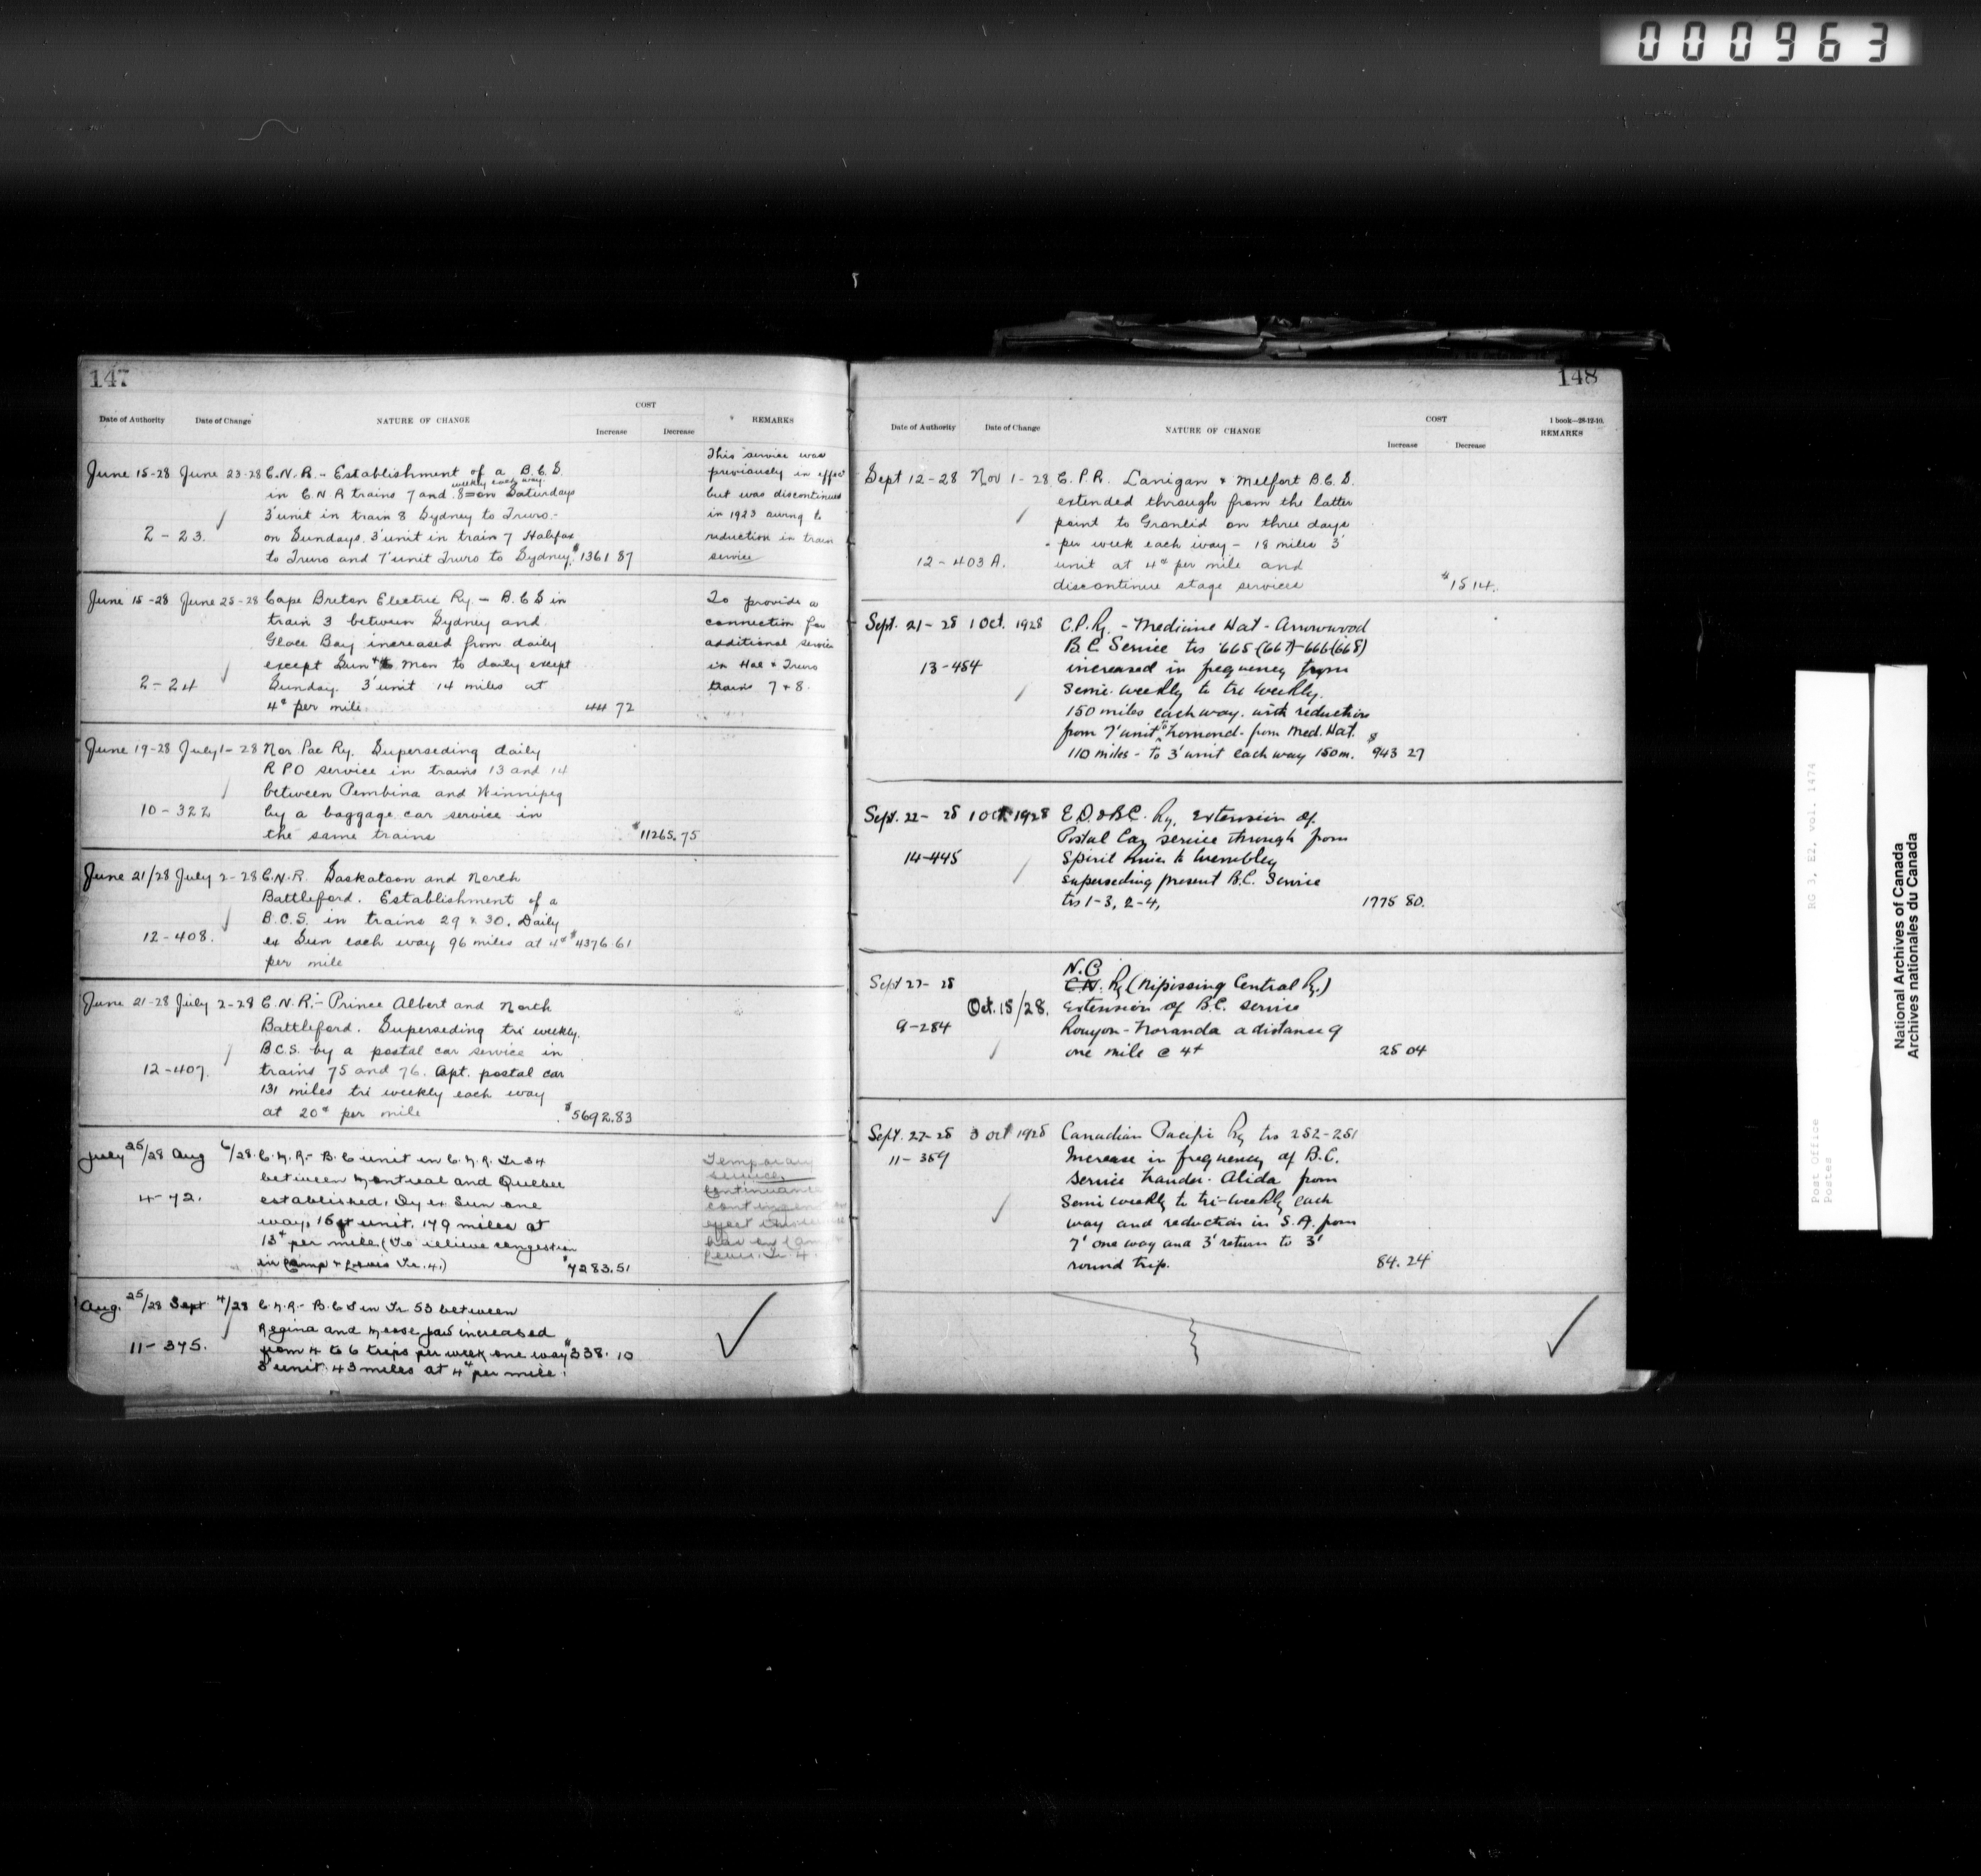 000963
147
Date of Authority Date of Change NATURE OF CHANGE COST REMARKS
Increase Decrease
June 15-28 June 23-28 C.N.R. - Establishment of a B.C.S.
weekly each way
in C.N.R trains 7 and 8 on Saturdays
3' unit in train 8 Sydney to Truro.-
2-23. on Sundays. 3' unit in train 7 Halifax
to Truro and 7' unit Truro to Sydney. $1361 87
This service was
previously in effect
but was discontinued
in 1923 owing to
reduction in train
service
June 15-28 June 25-28 Cape Breton Electric Ry. - B.C.S in
train 3 between Sydney and
Glace Bay increased from daily
except Sun & Mon to daily except
2-24 Sunday. 3' unit 14 miles at
4¢ per mile 44 72
To provide a
connection for
additional service
in Hal & Truro
trains 7 & 8.
June 19-28 July 1-28 Nor Pac Ry. Superseding daily
R P O service in trains 13 and 14
between Pembina and Winnipeg
10-322 by a baggage car service in
the same trains $11265.75
June 21/28 July 2-28 C.N.R. Saskatoon and North
Battleford. Establishment of a
B.C.S. in trains 29 & 30. Daily
12-408. ex Sun each way 96 miles at 4¢ $4376.61
per mile
June 21-28 July 2-28 C.N.R.- Prince Albert and North
Battleford. Superseding tri weekly.
B.C.S. by a postal car service in
12-407. trains 75 and 76. Apt. postal car
131 miles tri weekly each way
at 20¢ per mile $5692.83
July 25/28 Aug 6/28 C.N.R.- B.C unit in C.N.R. Tr 34
between Montreal and Quebec
4-72. established. Dy ex Sun one
way, 15 ft unit. 179 miles at
13¢ per mile (To relieve congestion
in Camp & Levis Tr. 4.) $7283.51
Temporary
service
continuance
contingent on
Levis. Tr 4.
Aug. 25/28 Sept 4/28 C.N.R.- B.C S in Tr 53 between
Regina and Moose Jaw increased
11-375. from 4 to 6 trips per week one way $338.10
3' unit. 43 miles at 4¢ per mile.
148
1 book-28-12-10.
Date of Authority Date of Change NATURE OF CHANGE COST REMARKS
Increase Decrease
Sept 12-28 Nov 1-28 C.P.R. Lanigan & Melfort B.C.S.
extended through from the latter
point to Gronlid on three days
per week each way - 18 miles 3'
12-403 A. unit at 4¢ per mile and
discontinue stage services $15 14.
Sept. 21-28 1 Oct. 1928 C.P.Ry. - Medicine Hat - Arrowwood
B.C Service trs 665-(667)-666(668)
13-454 increased in frequency from
semi-weekly to tri weekly.
150 miles each way. with reduction
from 7' unit to Lomond - from Med. Hat.
110 miles - to 3' unit each way 150 m. $943 27
Sept. 22-28 1 Oct 1928 E.D.&B.C. Ry. extension of
Postal Car service through from
14-445 Spirit River to Wembley
superseding present B.C. Service
trs 1-3, 2-4, 1775 80.
N.C
Sept 27-28 C.N. Ry (Nipissing Central Ry.)
Oct. 15/28. extension of B.C. service
9-284 Rouyn - Noranda a distance of
one mile @ 4¢ 25 04
Sept. 27-28 3 Oct 1928 Canadian Pacific Ry trs 252-251
11-359 Increase in frequency of B.C.
service Lauder - Alida from
semi weekly to tri-weekly each
way and reduction in S.A. from
7' one way and 3' return to 3'
round trip. 84.24
Post Office RG 3, E2, vol. 1474
Postes
National Archives of Canada
Archives nationales du Canada